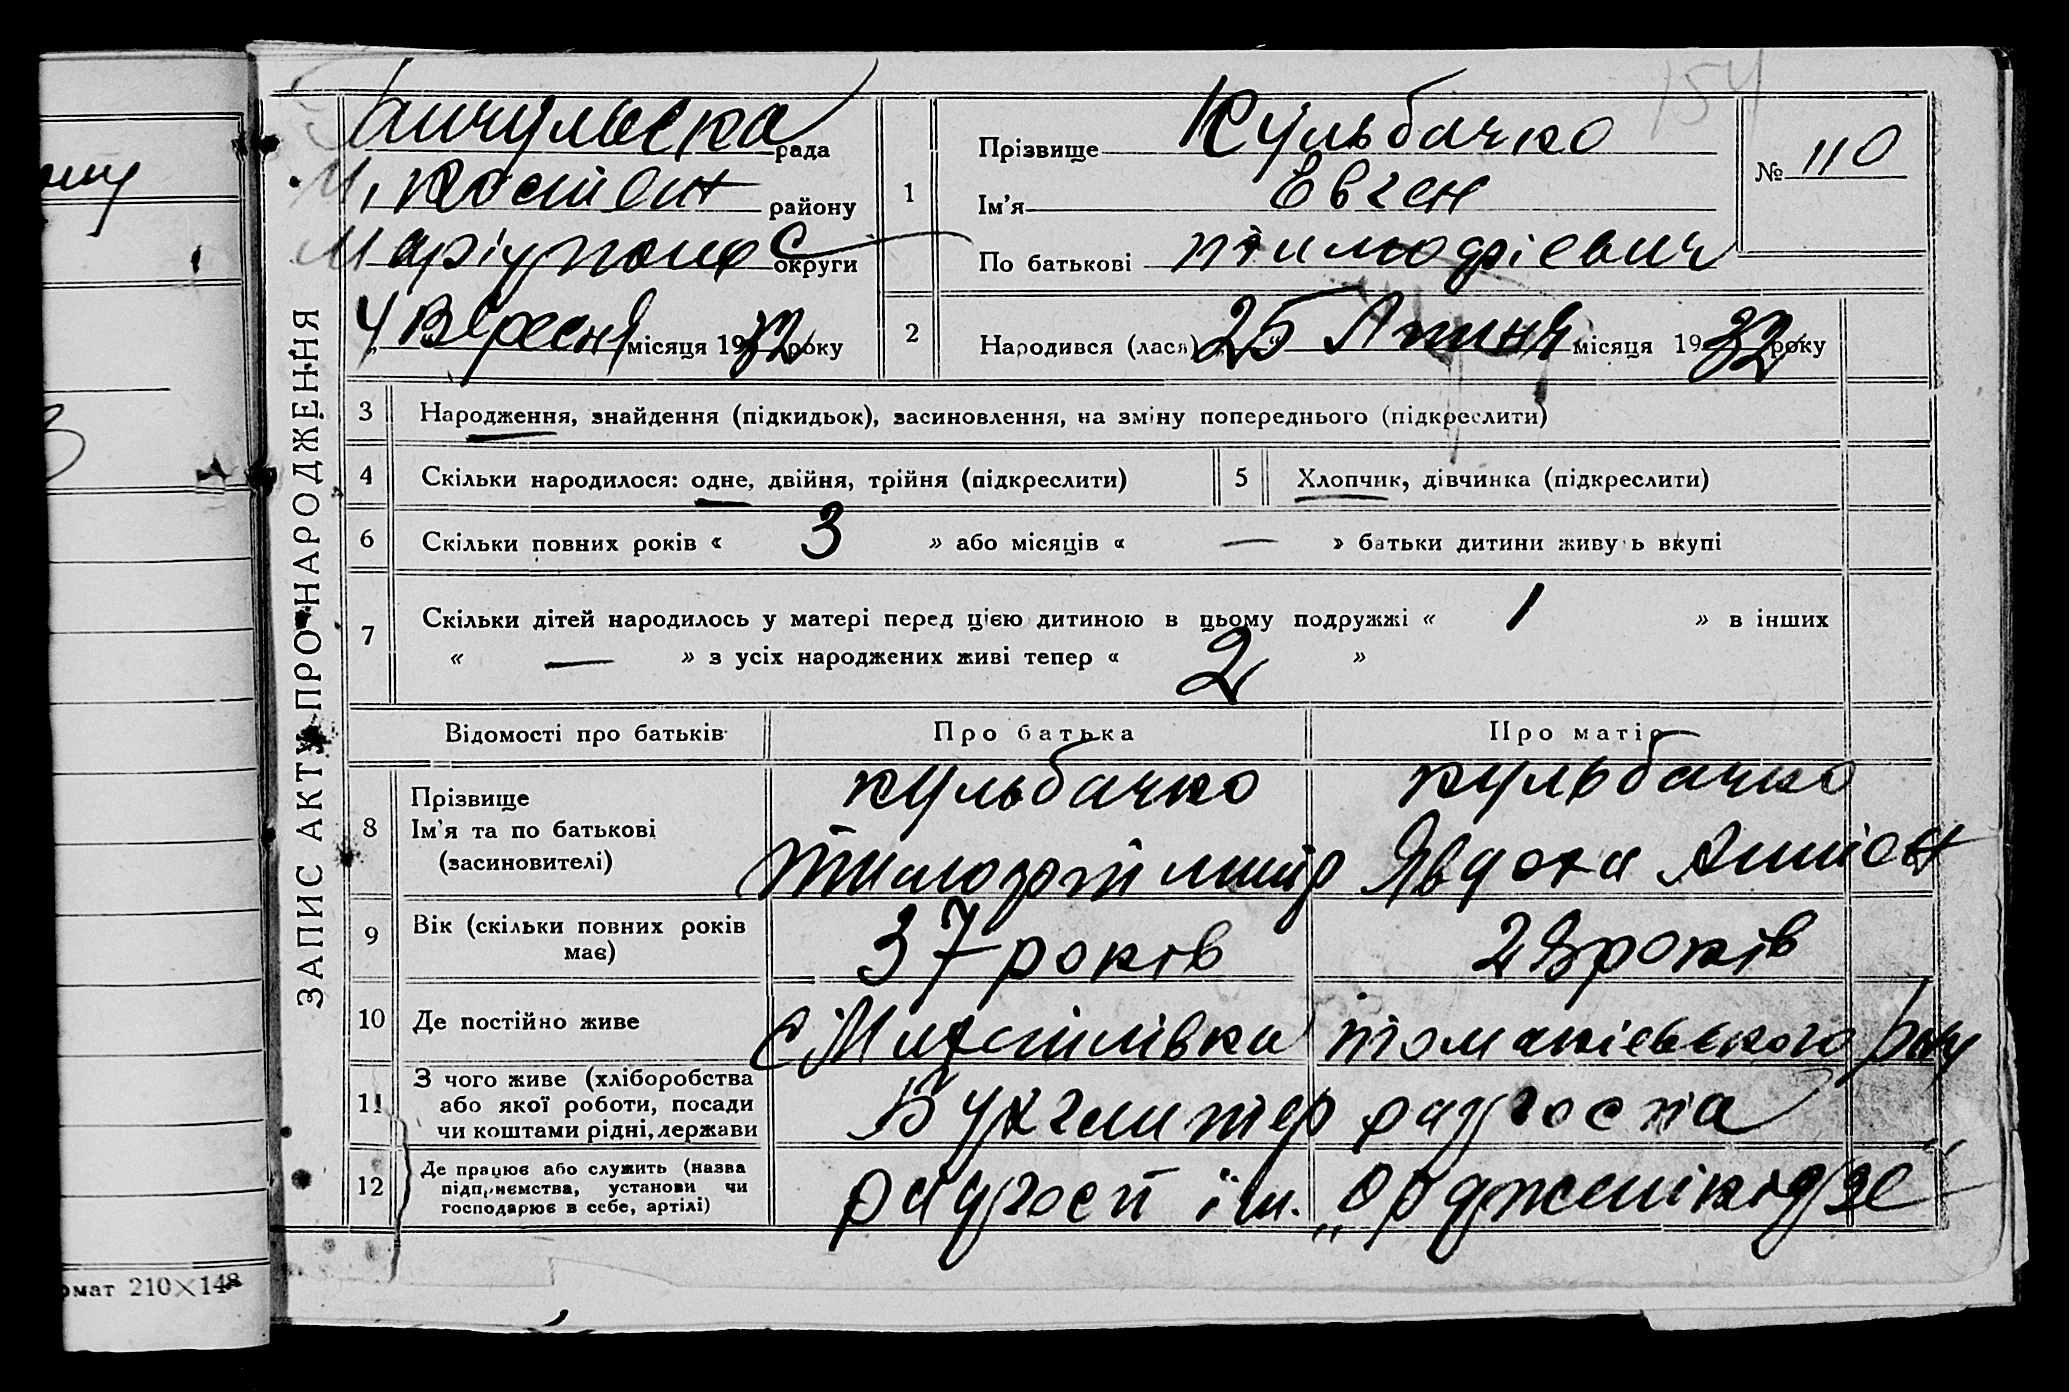 154
рада
М,
району
округи
4 Вересня місяця 1932 року
ЗАПИС АКТУ ПРО НАРОДЖЕННЯ
1
Прізвище Кульбачко
Ім'я Евген
По батькові
№ 110
2
Народився (лася) 25 місяця 1932 року
3 Народження, знайдення (підкидьок), засиновлення, на зміну попереднього (підкреслити)
4 Скільки народилося: одне, двійня, трійня (підкреслити)
5 Хлопчик, дівчинка (підкреслити)
6 Скільки повних років « 3 » або місяців « — » батьки дитини живуть вкупі
7 Скільки дітей народилось у матері перед цією дитиною в цьому подружжі « 1 » в інших
« — » з усіх народжених живі тепер « 2 »
Відомості про батьків
Про батька
Про матір
8
Прізвище
Ім'я та по батькові
(засиновителі)
Кульбачко
Кульбачко
Явдоха
9
Вік (скільки повних років
має)
37 років
28 років
10 Де постійно живе
с
11
З чого живе (хліборобства
або якої роботи, посади
чи коштами рідні, держави
Бухгалтер радгоспа
12
Де працює або служить (назва
підприємства, установи чи
господарює в себе, артілі)
радгосп ім. „Ордженікідзе
рмат 210×148